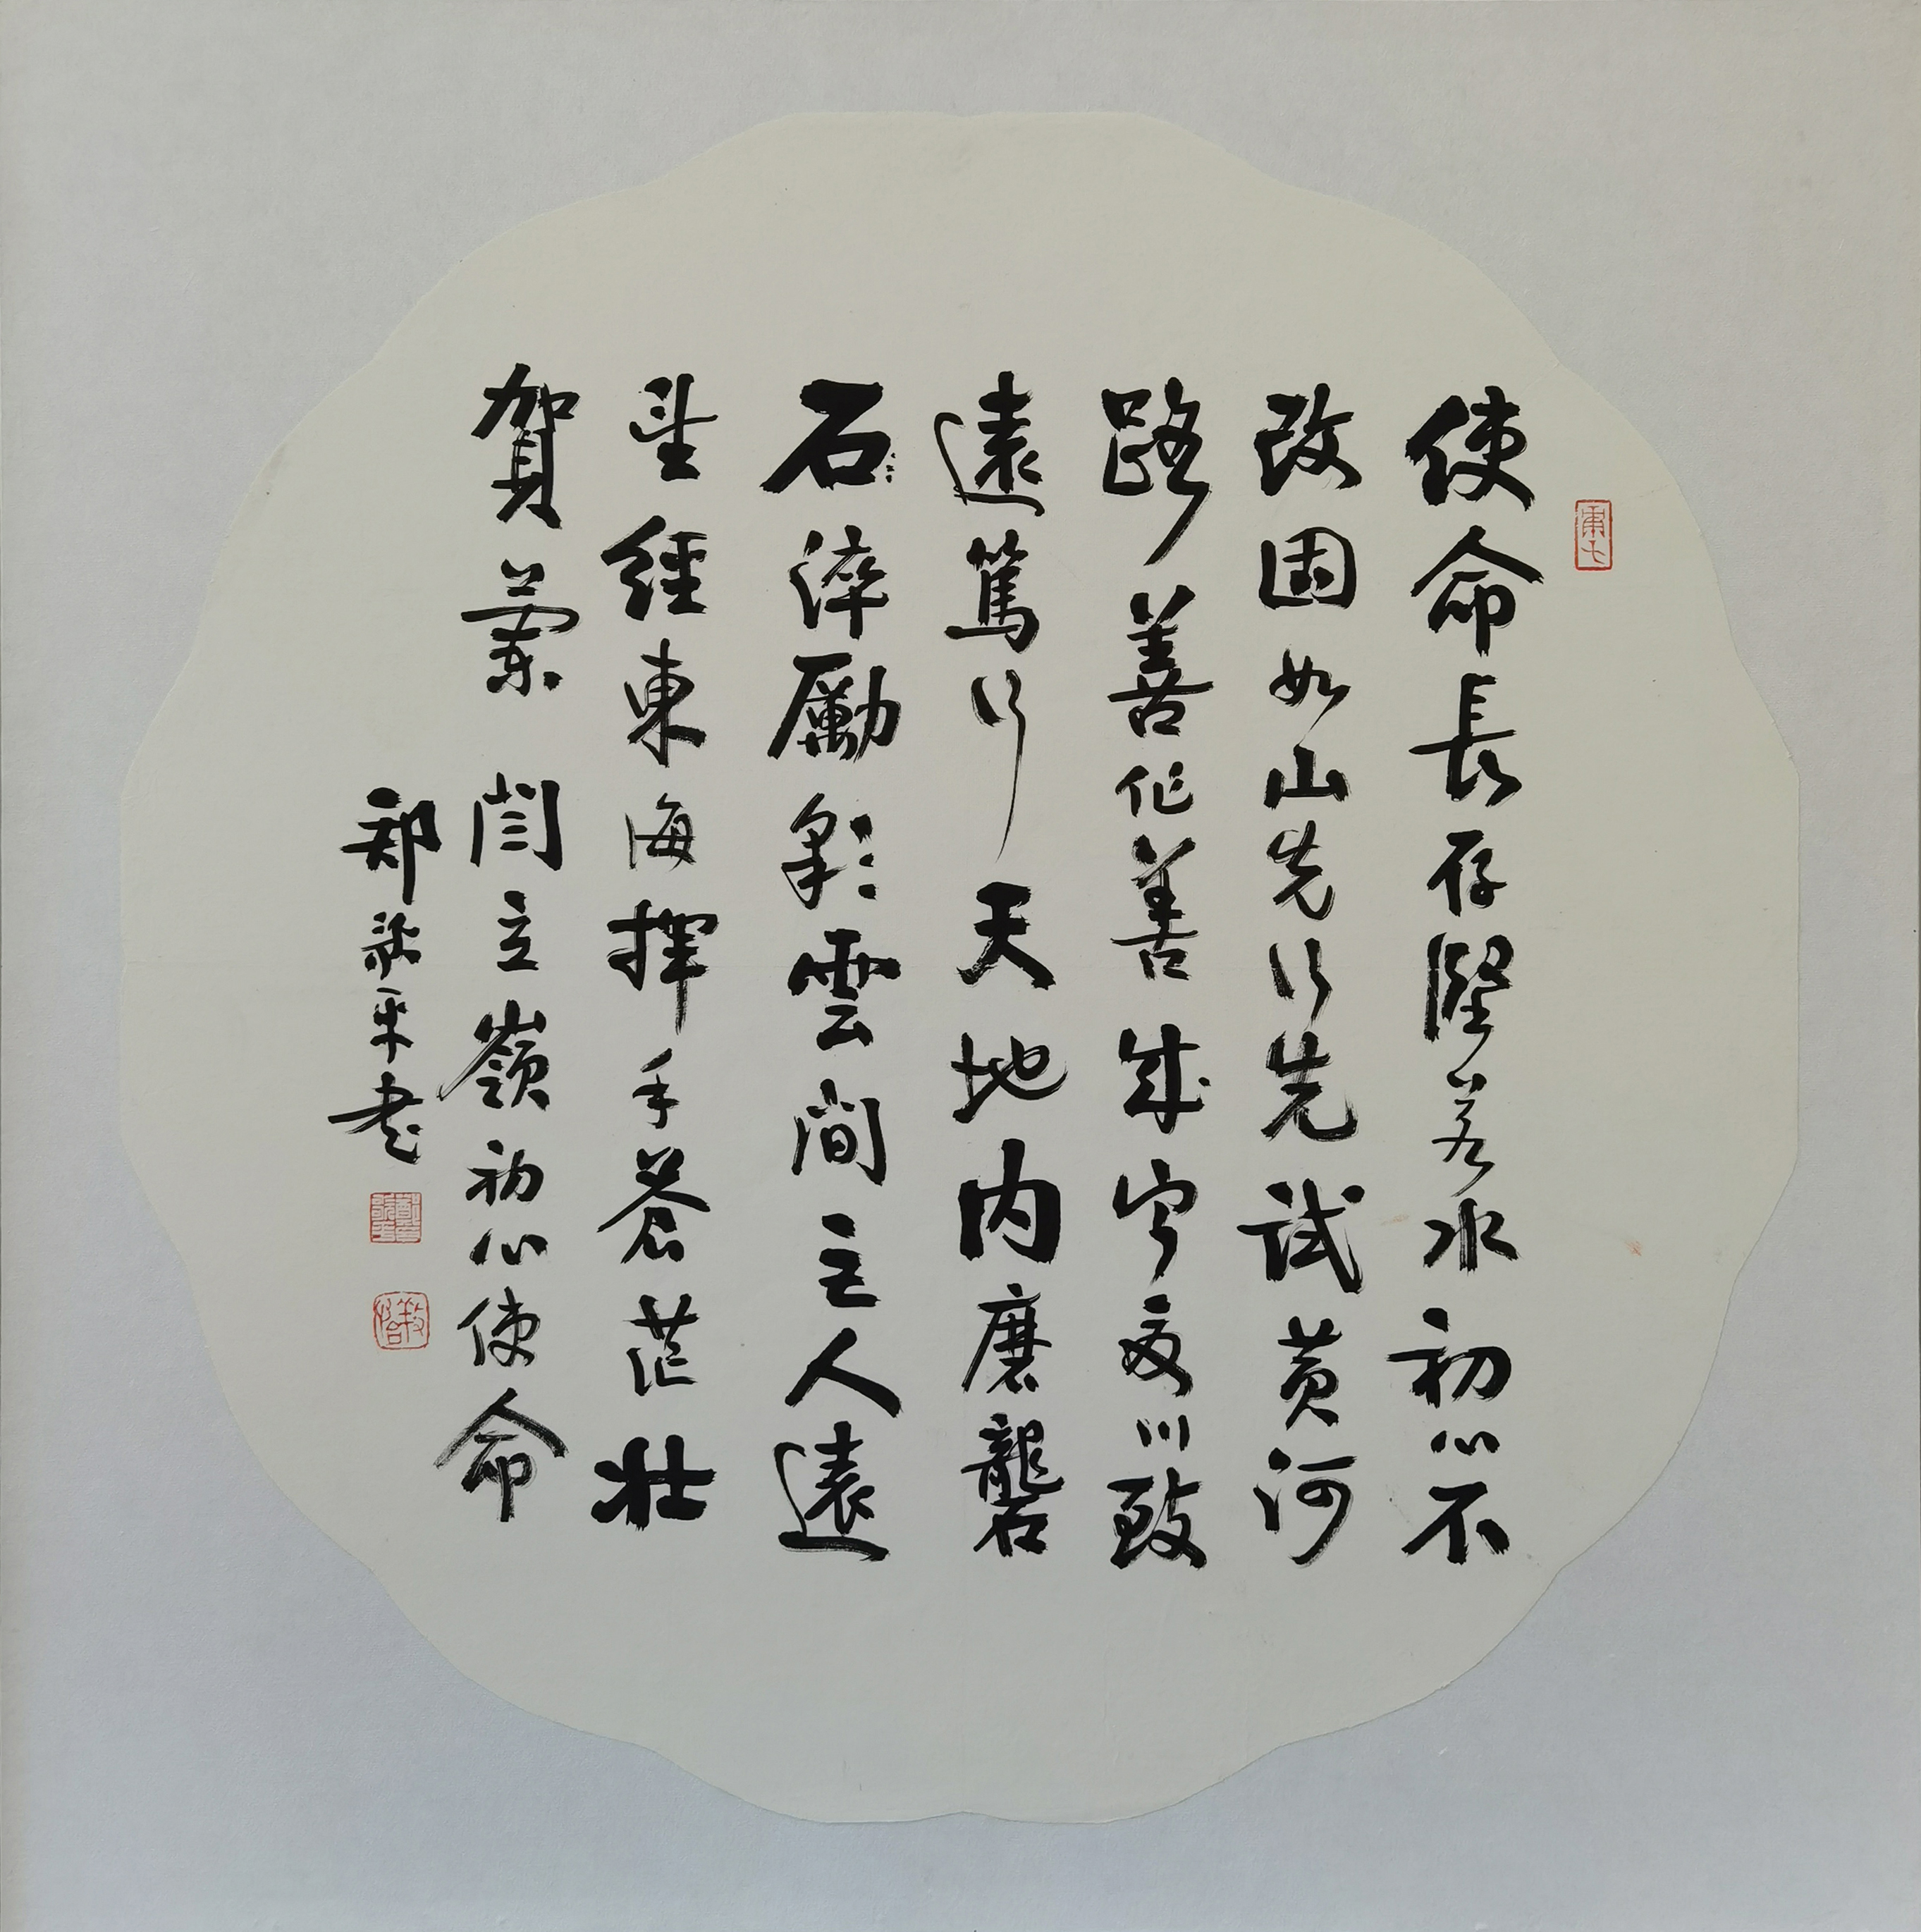 使命長存堅若水初心不
改固如山先行先試黃河
路善作善成寧夏川致
遠篤行天地内磨礱
石淬勵彩雲間主人遠
望經東海揮手蒼茫壯
賀蘭 閆立嶺初心使命
鄭歌平書